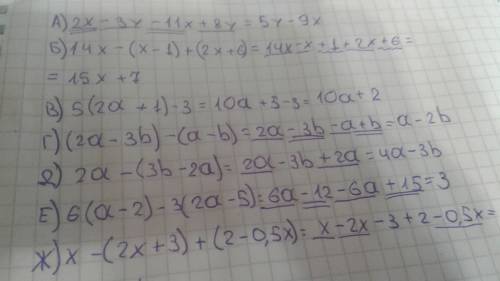 А) 2x - 3y - 11x + 8y = 5y - 9x
Б) 14x - (x - 1) + (2x + 6) = 14x - x + 1 + 2x + 6 =
= 15x + 7
В) 5(2a + 1) - 3 = 10a + 5 - 3 = 10a + 2
Г) (2a - 3b) - (a - b) = 2a - 3b - a + b = a - 2b
Д) 2a - (3b - 2a) = 2a - 3b + 2a = 4a - 3b
Е) 6(a - 2) - 3(2a - 5) = 6a - 12 - 6a + 15 = 3
Ж) x - (2x + 3) + (2 - 0,5x) = x - 2x - 3 + 2 - 0,5x =